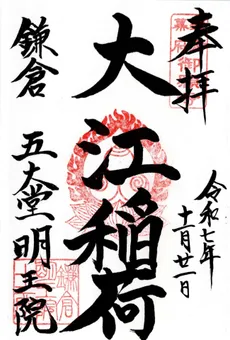 奉拝
令和七年
十一月廿一日
大江稲荷
鎌倉 五大堂明王院